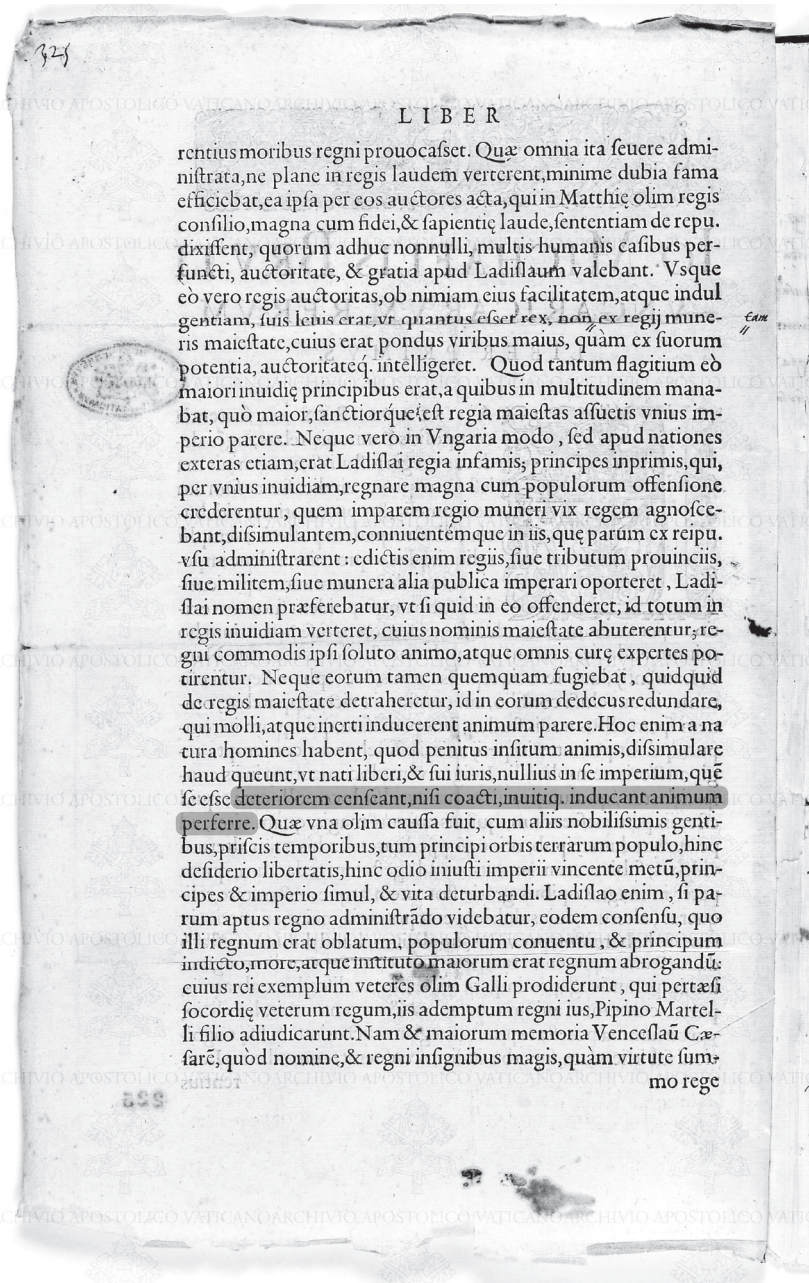 325
LIBER
rentius moribus regni prouocaſset. Quæ omnia ita ſeuere admi-
niſtrata,ne plane in regis laudem verterent,minime dubia fama
efficiebat,ea ipſa per eos auctores acta,qui in Matthię olim regis
conſilio,magna cum fidei,& ſapientię laude,ſententiam de repu.
dixiſſent, quorum adhuc nonnulli, multis humanis caſibus per-
functi, auctoritate, & gratia apud Ladiſlaum valebant. Vsque
eò vero regis auctoritas,ob nimiam eius facilitatem,atque indul
gentiam, ſuis leuis erat,vt quantus eſset rex, non ex regij mune- eam
ris maieſtate,cuius erat pondus viribus maius, quàm ex ſuorum
potentia, auctoritateq́. intelligeret. Quod tantum flagitium eò
maiori inuidię principibus erat,a quibus in multitudinem mana-
bat, quò maior,ſanctiorque eſt regia maieſtas aſſuetis vnius im-
perio parere. Neque vero in Vngaria modo, ſed apud nationes
exteras etiam,erat Ladiſlai regia infamis; principes inprimis,qui,
per vnius inuidiam,regnare magna cum populorum offenſione
crederentur, quem imparem regio muneri vix regem agnoſce-
bant,diſsimulantem,conniuentemque in iis,quę parum ex reipu.
vſu adminiſtrarent : edictis enim regiis,ſiue tributum prouinciis,
ſiue militem,ſiue munera alia publica imperari oporteret, Ladi-
ſlai nomen præferebatur, vt ſi quid in eo offenderet, id totum in
regis inuidiam verteret, cuius nominis maieſtate abuterentur; re-
gni commodis ipſi ſoluto animo,atque omnis curę expertes po-
tirentur. Neque eorum tamen quemquam fugiebat, quidquid
de regis maieſtate detraheretur, id in eorum dedecus redundare,
qui molli,atque inerti inducerent animum parere.Hoc enim a na
tura homines habent, quod penitus inſitum animis,diſsimulare
haud queunt,vt nati liberi,& ſui iuris,nullius in ſe imperium,quē
ſe eſse deteriorem cenſeant,niſi coacti,inuitiq. inducant animum
perferre. Quæ vna olim cauſſa fuit, cum aliis nobiliſsimis genti-
bus,priſcis temporibus,tum principi orbis terrarum populo,hinc
deſiderio libertatis,hinc odio iniuſti imperii vincente metū,prin-
cipes & imperio ſimul, & vita deturbandi. Ladiſlao enim, ſi pa-
rum aptus regno adminiſtrādo videbatur, eodem conſenſu, quo
illi regnum erat oblatum, populorum conuentu, & principum
indicto,more,atque inſtituto maiorum erat regnum abrogandū:
cuius rei exemplum veteres olim Galli prodiderunt, qui pertæſi
ſocordię veterum regum,iis ademptum regni ius,Pipino Martel-
li filio adiudicarunt.Nam & maiorum memoria Venceſlaū Cæ-
ſarē,quòd nomine,& regni inſignibus magis,quàm virtute ſum-
mo rege